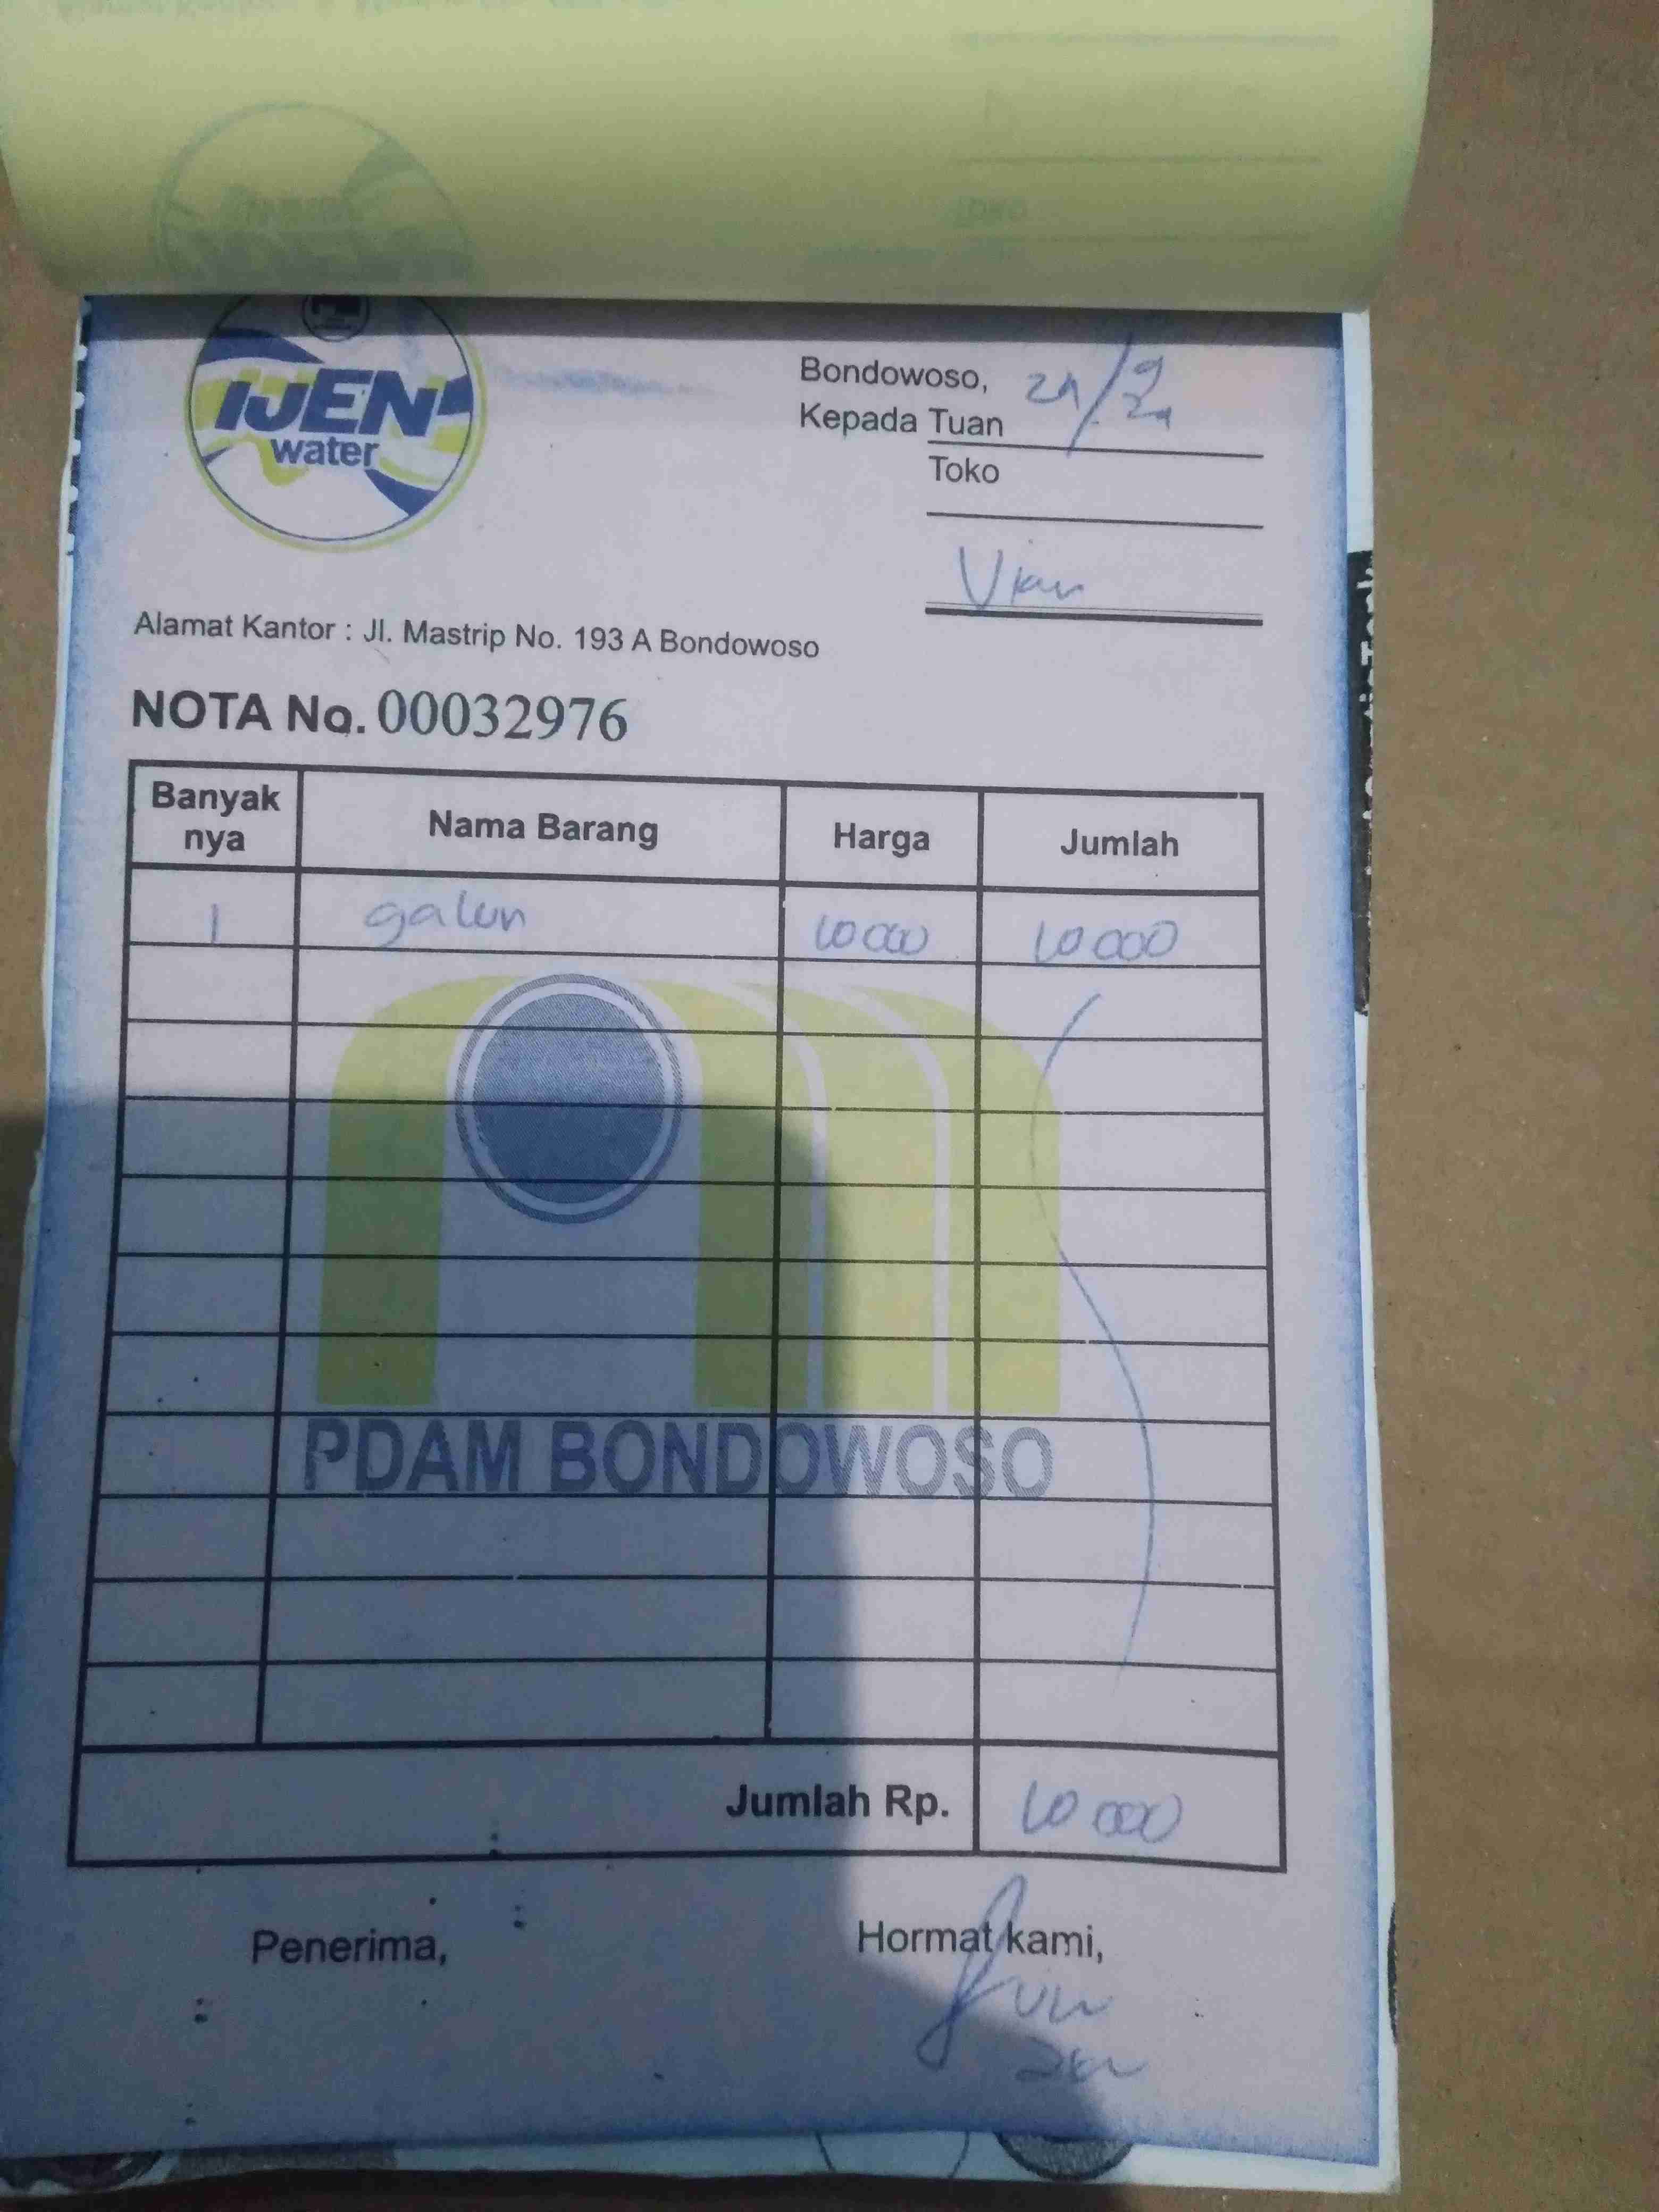 IJEN
water
Bondowoso,
Kepada Tuan
Toko
Vian
Alamat Kantor : Jl. Mastrip No. 193 A Bondowoso
NOTA No. 00032976
Banyak nya Nama Barang Harga Jumlah
1 galon 10 000 10 000
PDAM BONDOWOSO
Jumlah Rp. 10 000
Penerima, Hormat kami,